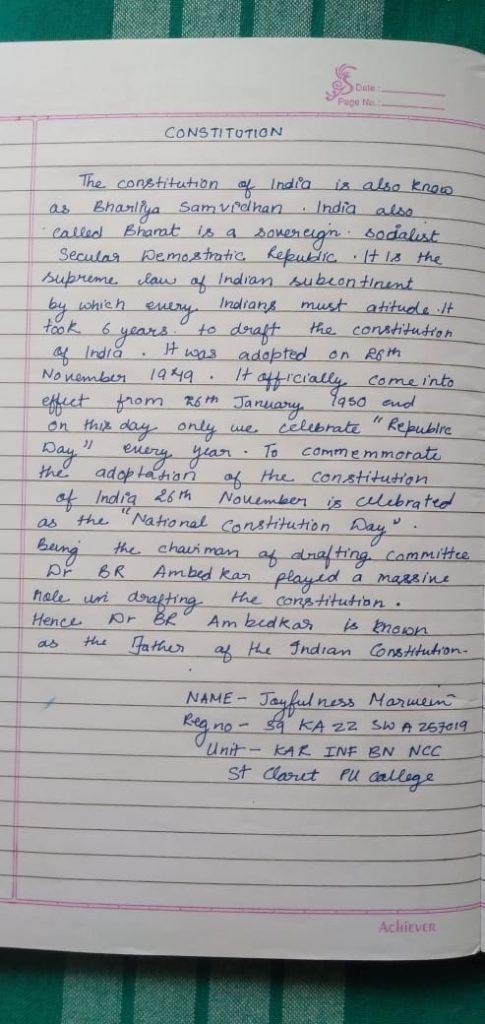 Date :
Page No.:
CONSTITUTION
The constitution of India is also know
as Bhartiya Samvidhan . India also
called Bharat is a sovereign socialist
Secular Demostratic Republic . It is the
supreme law of Indian subcontinent
by which every Indians must atitude . It
took 6 years . to draft the constitution
of India . It was adopted on 26th
November 1949 . It officially come into
effect from 26th January 1950 and
on this day only we celebrate "Republic
Day" every year . To commemorate
the adoptation of the constitution
of India 26th November is celebrated
as the "National Constitution Day" .
Being the chairman of drafting committee
Dr BR Ambedkar played a massive
role in drafting the constitution .
Hence Dr BR Ambedkar is known
as the Father of the Indian Constitution-
NAME - Joyfulness Marwein
Reg no - KA 22 SW A 257019
Unit - KAR INF BN NCC
St Claret PU College
ACHIEVER